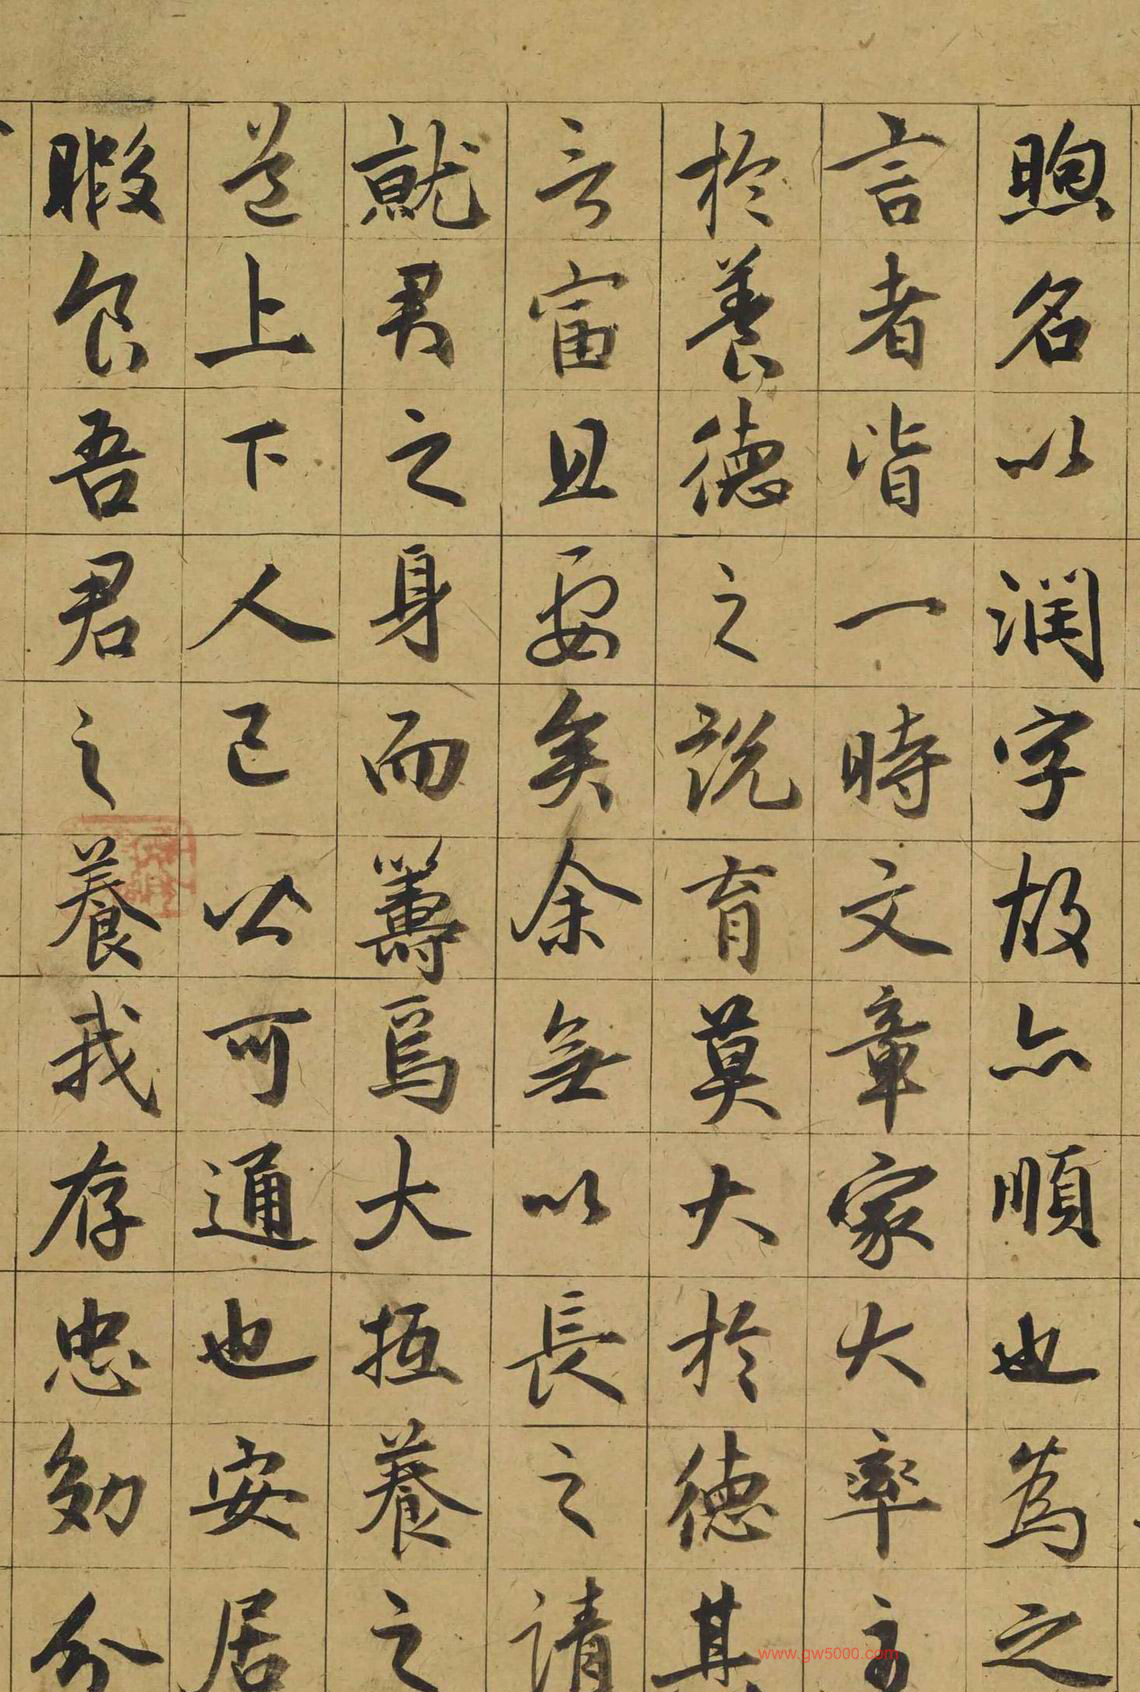 煦名以润字故亦順也為之
言者皆一時文章家大率主
於養德之說育莫大於德其
言富且要矣余無以長之請
就君之身而籌焉大抵養之
道上下人己公可通也安居
暇食吾君之養我存忠効分
www.gw5000.com